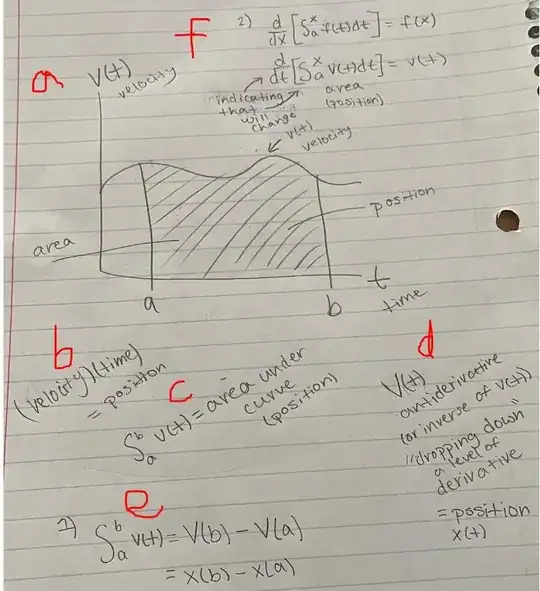 f
2) d/dx [∫ₐˣ f(t)dt] = f(x)
d/dt [∫ₐˣ v(t)dt] = v(t)
indicating that will change
area (position)
a
v(t)
velocity
v(t)
velocity
position
area
a
b
t
time
b
(velocity)(time)
= position
c
∫ₐᵇ v(t) = area under
curve
(position)
d
V(t)
antiderivative
(or inverse of v(t))
"dropping down"
a level of
derivative
= position
x(t)
e
1) ∫ₐᵇ v(t) = V(b) - V(a)
= x(b) - x(a)